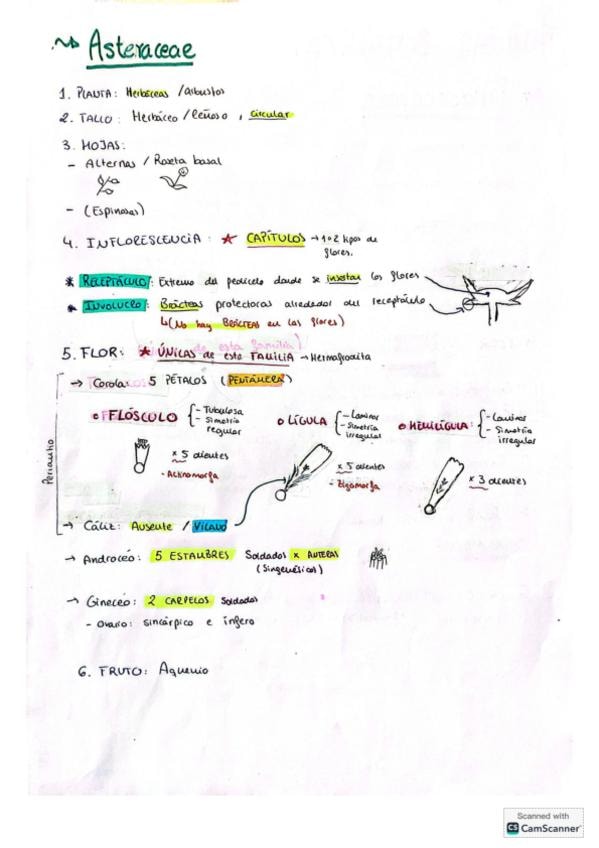 Asteraceae
1. PLANTA: Herbáceas / arbustos
2. TALLO: Herbáceo / Leñoso, circular
3. HOJAS:
- Alternas / Roseta basal
- (Espinosas)
4. INFLORESCENCIA: ★ CAPÍTULOS → 1 o 2 tipos de
flores.
* RECEPTÁCULO: Extremo del pedicelo donde se insertan las flores
* INVOLUCRO: Brácteas protectoras alrededor del receptáculo
↳ (No hay BRÁCTEAS en las flores)
5. FLOR: * ÚNICAS de esta FAMILIA → Hermafrodita
Perianto
→ Corola: 5 PÉTALOS (PENTÁMERA)
○ FLÓSCULO
- Tubulosa
- Simetría
regular
○ LÍGULA
- Laminar
- Simetría
irregular
○ HEMILÍGULA:
- Laminar
- Simetría
irregular
x 5 dientes
- Actinomorfa
x 5 dientes
- Zigomorfa
x 3 dientes
→ Cáliz: Ausente / VILANO
→ Androceo: 5 ESTAMBRES Soldados x ANTERAS
(Singenésicos)
→ Gineceo: 2 CARPELOS soldados
- Ovario: sincárpico e ínfero
6. FRUTO: Aquenio
Scanned with
CS CamScanner